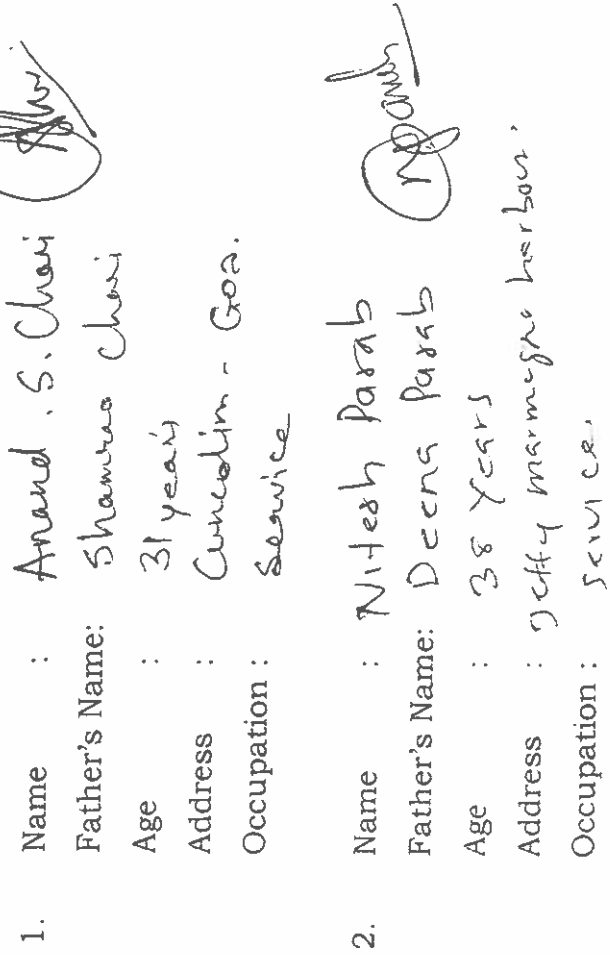 1. Name : Anand . S. Chari
Father's Name: Shamrao Chari
Age : 31 years
Address : Cuncolim - Goa.
Occupation : Service
2. Name : Nitesh Parab
Father's Name: Deena Parab
Age : 38 Years
Address : Jetty marmagno harbour.
Occupation : service.